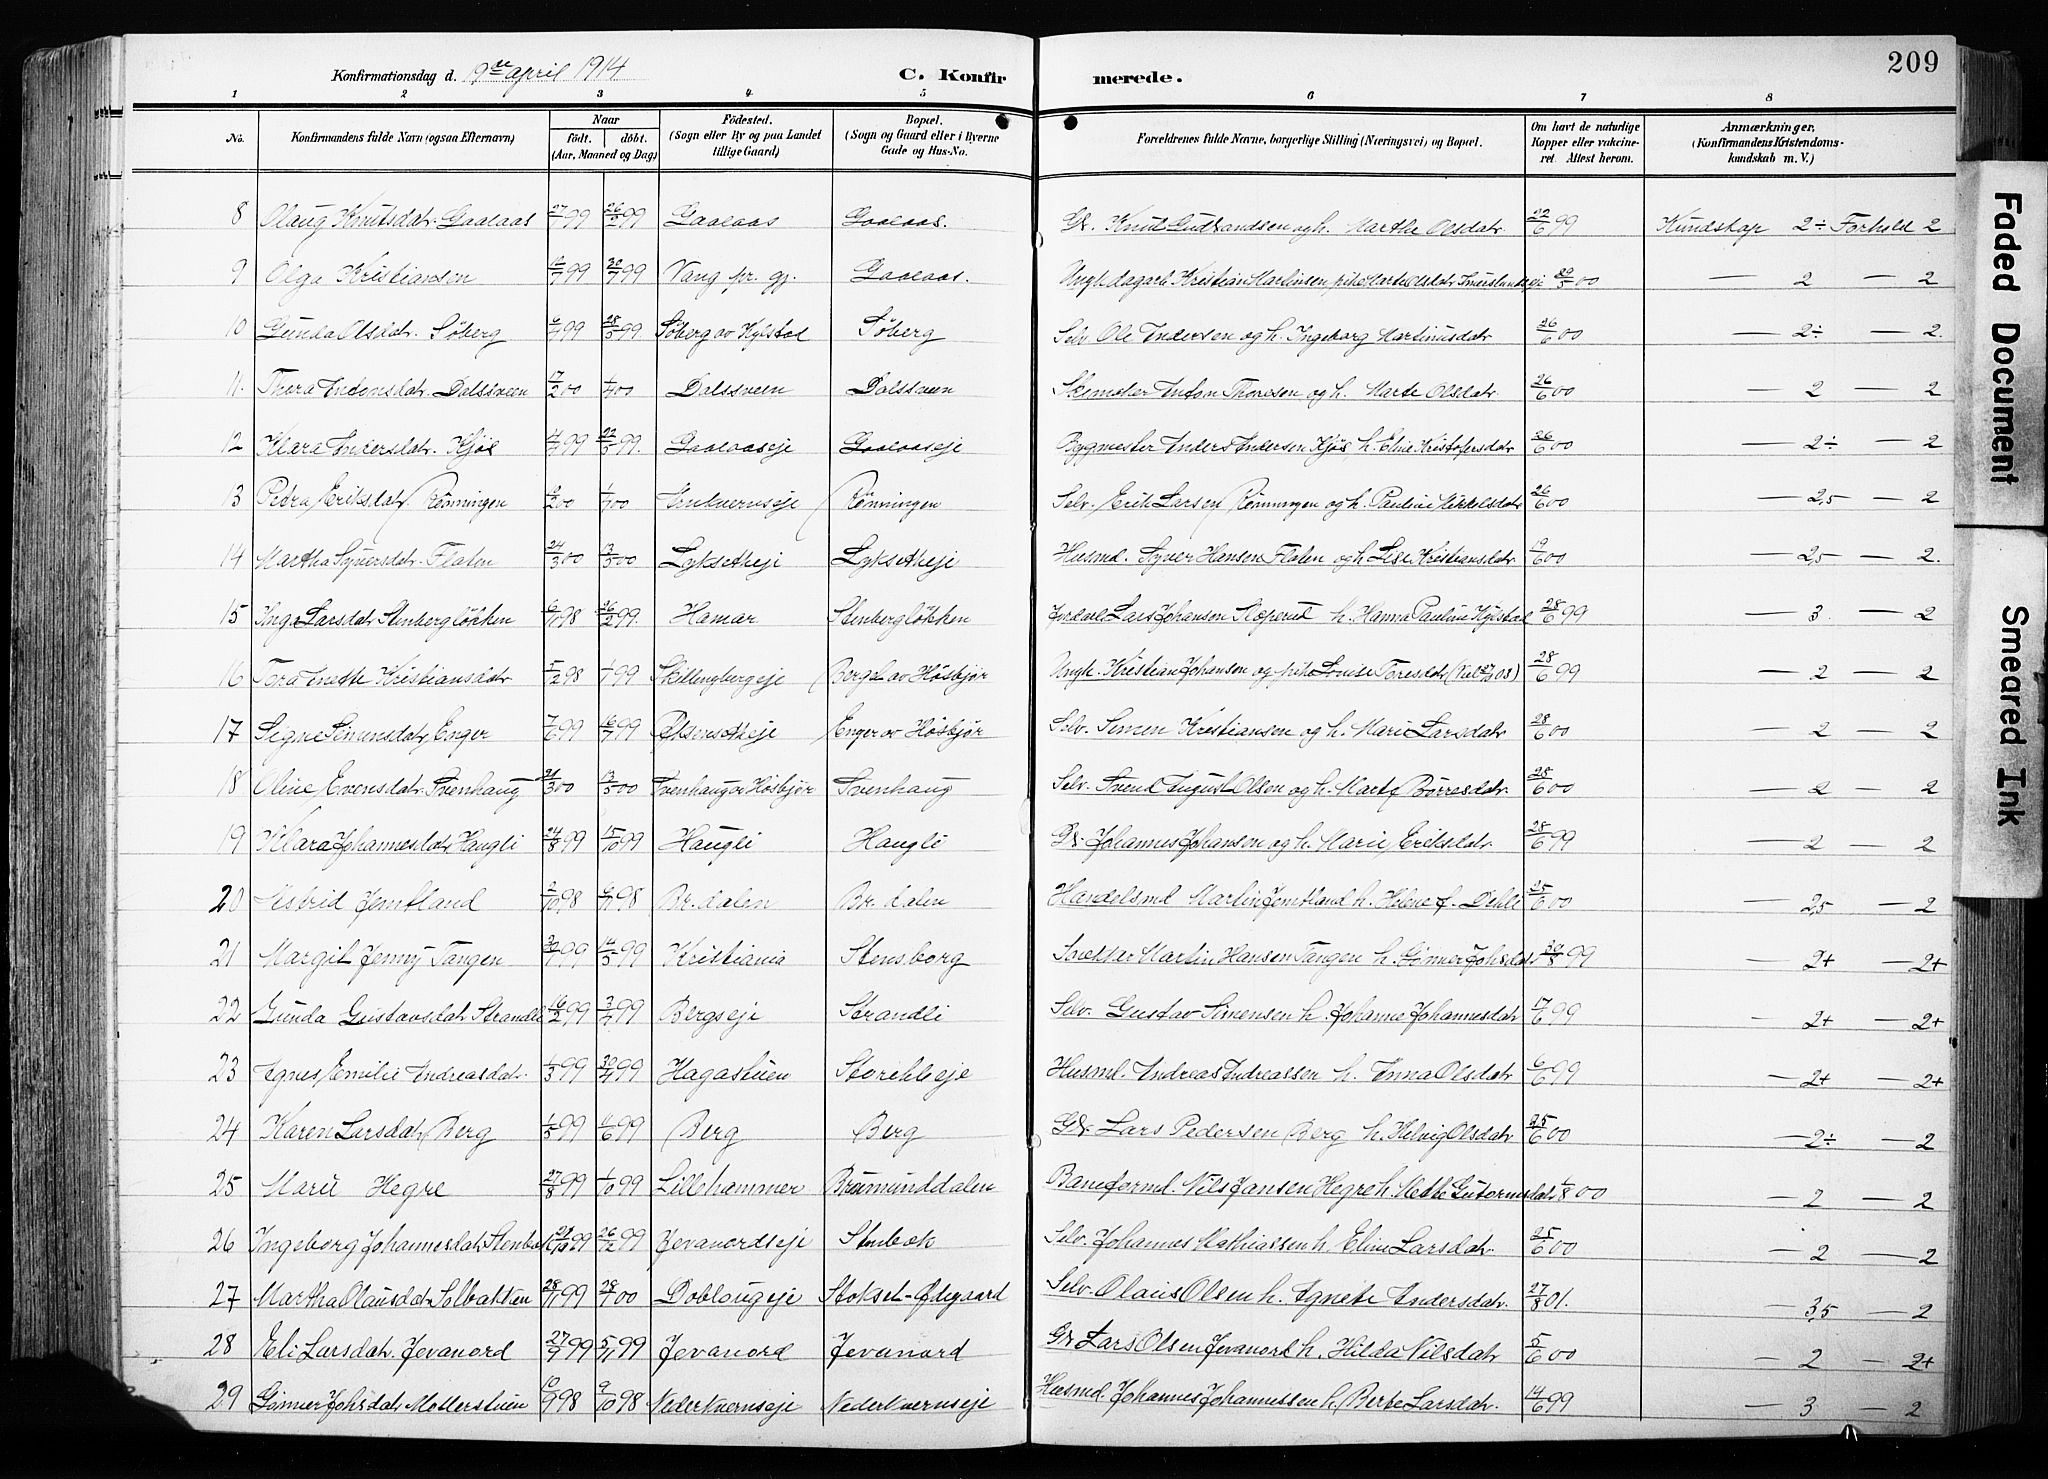 209
Konfirmationsdag d. 19de april 1914 C. Konfirmerede.
1 2 3 4 5 6 7 8
No. Konfirmandens fulde Navn (ogsaa Efternavn) Naar født. døbt. (Aar, Maaned og Dag) Fødested. (Sogn eller By og paa Landet tillige Gaard) Bopæl. (Sogn og Gaard eller i Byerne Gade og Hus-No. Forældrenes fulde Navne, borgerlige Stilling (Næringsvei) og Bopæl. Om havt de naturlige Kopper eller vakcineret. Attest herom. Anmærkninger. (Konfirmandens Kristendomskundskab m. V.)
8 Olaug Knutsdatr. Gaalaas 27/7 99 26/2 99 Gaalaas Gaalaas. Gr. Knut Gudbrandsen og h. Marthe Olsdatr 22/6 99 Kundskap 2÷ Forhold 2
9 Olga Kristiansen 99 30/7 99 Vang pr. gj. Gaalaas. Ungk. dagarb. Kristian Martinsen, pike Marte Olsdatr 29/5 00 — 2 — 2
10 Gunda Olsdatr. Søberg 99 28/5 99 Søberg av Hylstad Søberg Selv. Ole Andersen og h. Ingeborg Martinusdatr 26/6 00 — 2÷ — 2.
11. Thora Antonsdatr. Dalssveen 17/2 00 1/4 00 Dalssveen Dalssveen Skomaker Anton Thoresen og h. Marte Olsdatr. 26/6 00 — 2 — 2
12 Klara Andersdatr. Kjøs 4/4 99 22/5 99. Gaalaaseje Gaalaaseje Bygmester Anders Andersen Kjøs, h. Eline Kristofersdatr 26/6 00 — 2÷ — 2
13 Petra Eriksdatr. Rønningen 00 1/4 00 Rønningen Selv. Erik Larsen Rønningen og h. Pauline Mikkelsdatr 26/6 00 — 2,5 — 2
14 Martha Syversdatr. Flaten 24/3 00 13/5 00 Lyksetheje Lyksetheje Husmd. Syver Hansen Flaten og h. Lise Kristiansdatr 19/6 00 — 2,5 — 2.
15 Inga Larsdatr Stenbergløkken 98 26/2 99. Hamar Stenbergløkken Lars Johansen Slæperud h. Hanna Pauline Hylstad 28/6 99 — 3. — 2
16 Tora Anette Kristiansdatr 5/12 98 99 Skillingbergeje Berget av Høsbjør Ungk. Kristian Johansen og pike Lovise Toresdatr 28/6 99 — 2 — 2
17 Signe Simensdatr Enger 7/6 99 16/7 99 Enger av Høsbjør Selv. Simen Kristiansen og h. Marie Larsdatr 28/6 00 — 2 — 2
18 Oline Evensdatr. Svenhaug 21/3 00 13/5 00 Svenhaug av Høsbjør Svenhaug Selv. Svend August Olsen og h. Marte Børresdatr. 28/6 00 — 2 — 2
19 Klara Johannesdatr Haugli 24/8 99 15/10 99 Haugli Haugli Gr. Johannes Johansen og h. Marie Eriksdatr. 28/6 99 — 2 — 2
20 Astrid Jemtland 2/10 98 6/11 98 Br. dalen Br. dalen Handelsmd. Martin Jemtland h. Helene f. Dehli 25/6 00 — 2,5 — 2
21 Margit Jenny Tangen 99 14/5 99 Kristiania Stensborg Martin Hansen Tangen h. Gunner Johsdatr 30/8 99 — 2+ — 2+
22 Gunda Gustavsdatr Strandli 16/2 99 3/4 99 Bergseje Strandli Selv. Gustav Simensen h. Johanne Johannesdatr 17/6 99 — 2+ — 2+
23 Agnes Emilie Andreasdatr. 1/3 99 30/4 99 Hagastuen Storihleeje Husmd. Andreas Andreassen h. Anna Olsdatr 6/6 99 — 2+ — 2+
24 Karen Larsdatr Berg 1/5 99 4/6 99 Berg Berg Gr. Lars Pedersen Berg h. Helvig Olsdatr 25/6 00 — 2÷ — 2
25 Marie Hegre 27/8 99 1/10 99 Lillehammer Brumunddalen Baneformd. Nils Jansen Hegre h. Mette Gutormsdatr 1/8 00 — 2 — 2
26 Ingeborg Johannesdatr Stenbæk 21/10 99 26/12 99 Jevanordseje Stenbæk Selv. Johannes Mathiassen h. Eline Larsdatr. 25/6 00 — 2 — 2
27 Martha Olausdatr Solbakken 28/11 99 28/1 00 Doblougeje Stokset-Ødegaard Selv. Olaus Olsen h. Agnete Andersdatr. 27/8 01. — 3,5 — 2
28 Eli Larsdatr. Jevanord 27/9 99 5/11 99 Jevanord Jevanord Gr. Lars Olsen Jevanord h. Hilda Nilsdatr 5/6 00 — 2 — 2+
29 Gunner Johsdatr Møllerstuen 98 9/10 98 Nederkverneje Nederkverneje Husmd. Johannes Johannessen h. Berte Larsdatr. 14/6 99 — 3 — 2
Faded Document
Smeared Ink